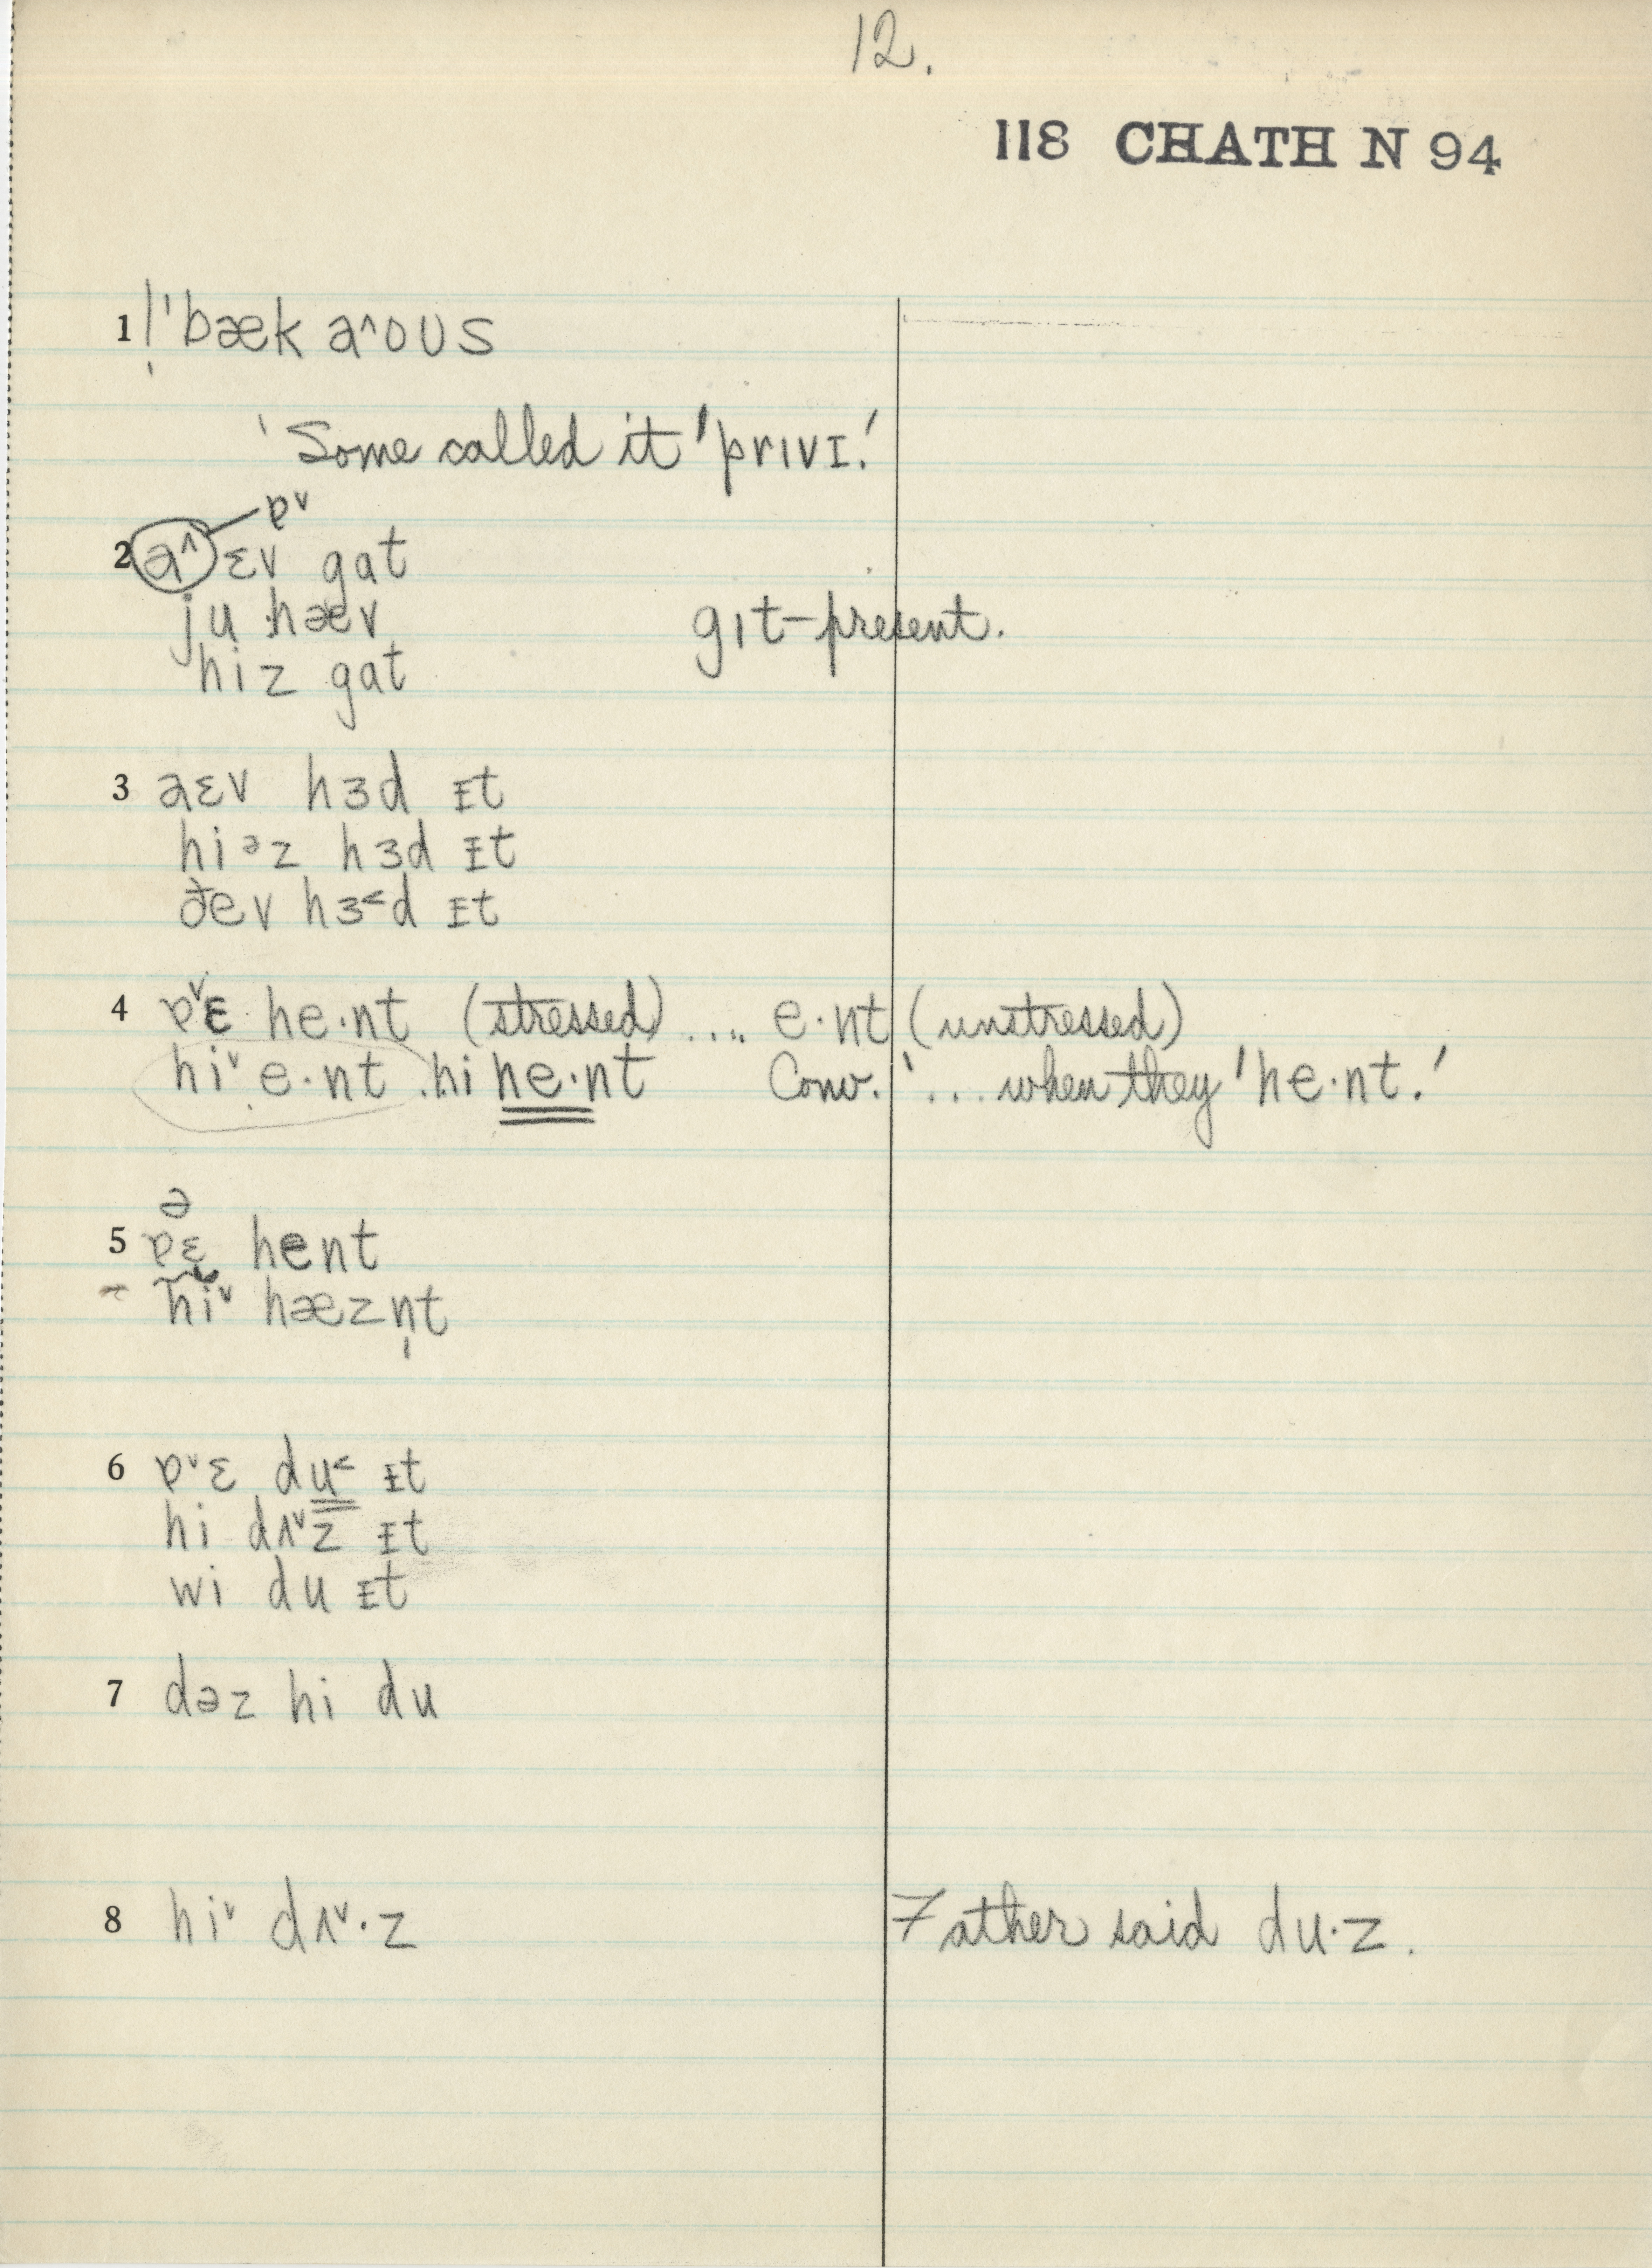 12.
118 CHATH N 94
1 !ˈbæk a^ous
'Some called it ˈprɪvɪ.'
ɐˇ
2 a^ ɛv gat
ju hæv gɪt-present.
hiz gat
3 aɛv hɜd ɪt
hiəz hɜd ɪt
ðev hɜ<d ɪt
4 ɐˇɛ he·nt (stressed) .... e·nt (unstressed)
hiˇ e·nt hi he·nt Conv. '... when they ˈhe·nt.'
ə
5 ɐɛ hent
hiˇ hæzn̩t
6 ɐˇɛ du< ɪt
hi dʌˇz ɪt
wi du ɪt
7 dəz hi du
8 hiˇ dʌˇ·z Father said du·z.